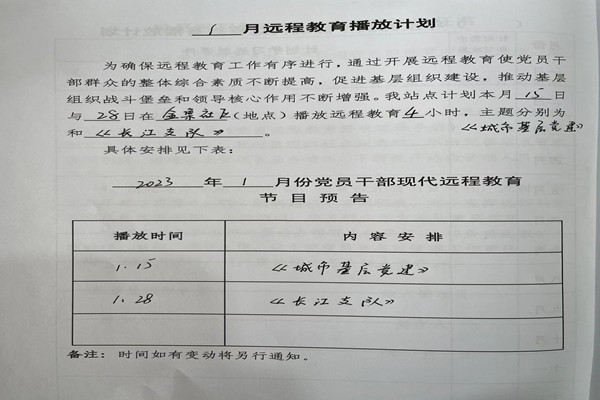 1 月远程教育播放计划
为确保远程教育工作有序进行，通过开展远程教育使党员干
部群众的整体综合素质不断提高，促进基层组织建设，推动基层
组织战斗堡垒和领导核心作用不断增强。我站点计划本月 15 日
与 28 日在 金集社区(地点) 播放远程教育 4 小时，主题分别为
《城市基层党建》
和 《长江支队》 。
具体安排见下表：
2023 年 1 月份党员干部现代远程教育
节目预告
播放时间 内容安排
1.15 《城市基层党建》
1.28 《长江支队》
备注：时间如有变动将另行通知。